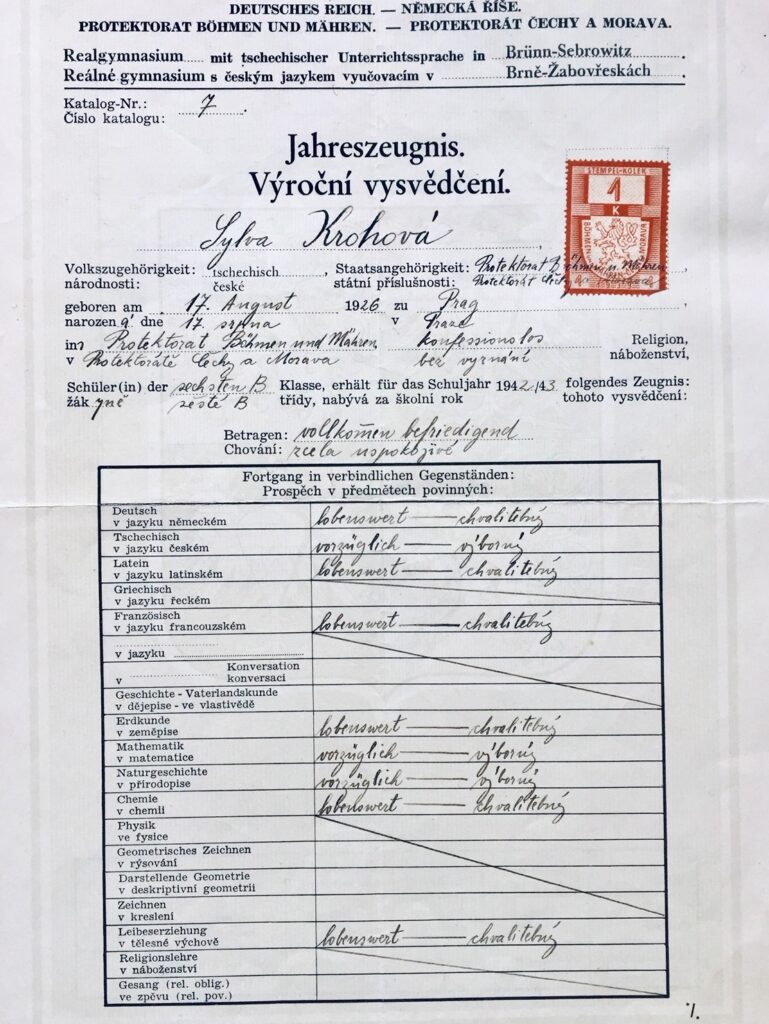 DEUTSCHES REICH. — NĚMECKÁ ŘÍŠE.
PROTEKTORAT BÖHMEN UND MÄHREN. — PROTEKTORÁT ČECHY A MORAVA.
Realgymnasium mit tschechischer Unterrichtssprache in Brünn-Sebrowitz
Reálné gymnasium s českým jazykem vyučovacím v Brně-Žabovřeskách
Katalog-Nr.:
Číslo katalogu: 7.
Jahreszeugnis.
Výroční vysvědčení.
STEMPEL-KOLEK
1
K
Sylva Krohová
Volkszugehörigkeit: tschechisch, Staatsangehörigkeit: Protektorat Böhmen u. Mähren
národnosti: české státní příslušnosti: Protektorát Čechy a Morava
geboren am 17. August 1926 zu Prag
narozená dne 17. srpna v Praze
in Protektorat Böhmen und Mähren konfessionslos Religion,
v Protektorátě Čechy a Morava bez vyznání náboženství,
Schüler(in) der sechsten B Klasse, erhält für das Schuljahr 1942/43 folgendes Zeugnis:
žákyně šesté B třídy, nabývá za školní rok tohoto vysvědčení:
Betragen: vollkommen befriedigend
Chování: zcela uspokojivé
Fortgang in verbindlichen Gegenständen:
Prospěch v předmětech povinných:
Deutsch
v jazyku německém lobenswert — chvalitebný
Tschechisch
v jazyku českém vorzüglich — výborný
Latein
v jazyku latinském lobenswert — chvalitebný
Griechisch
v jazyku řeckém
Französisch
v jazyku francouzském lobenswert — chvalitebný
v jazyku
Konversation
v konversaci
Geschichte - Vaterlandskunde
v dějepise - ve vlastivědě
Erdkunde
v zeměpise lobenswert — chvalitebný
Mathematik
v matematice vorzüglich — výborný
Naturgeschichte
v přírodopise vorzüglich — výborný
Chemie
v chemii lobenswert — chvalitebný
Physik
ve fysice
Geometrisches Zeichnen
v rýsování
Darstellende Geometrie
v deskriptivní geometrii
Zeichnen
v kreslení
Leibeserziehung
v tělesné výchově lobenswert — chvalitebný
Religionslehre
v náboženství
Gesang (rel. oblig.)
ve zpěvu (rel. pov.)
·/.